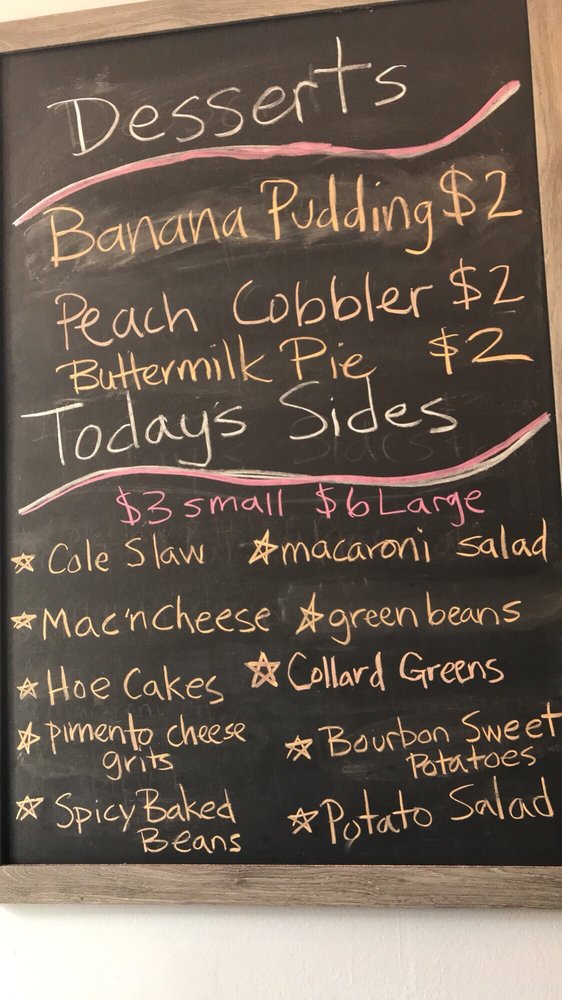 Desserts
Banana Pudding $2
Peach Cobbler $2
Buttermilk Pie $2
Today's Sides
$3 small $6 Large
☆ Cole Slaw ☆ macaroni salad
☆ Mac'n Cheese ☆ green beans
☆ Hoe Cakes ☆ Collard Greens
☆ pimento cheese grits
☆ Bourbon Sweet Potatoes
☆ Spicy Baked Beans
☆ Potato Salad